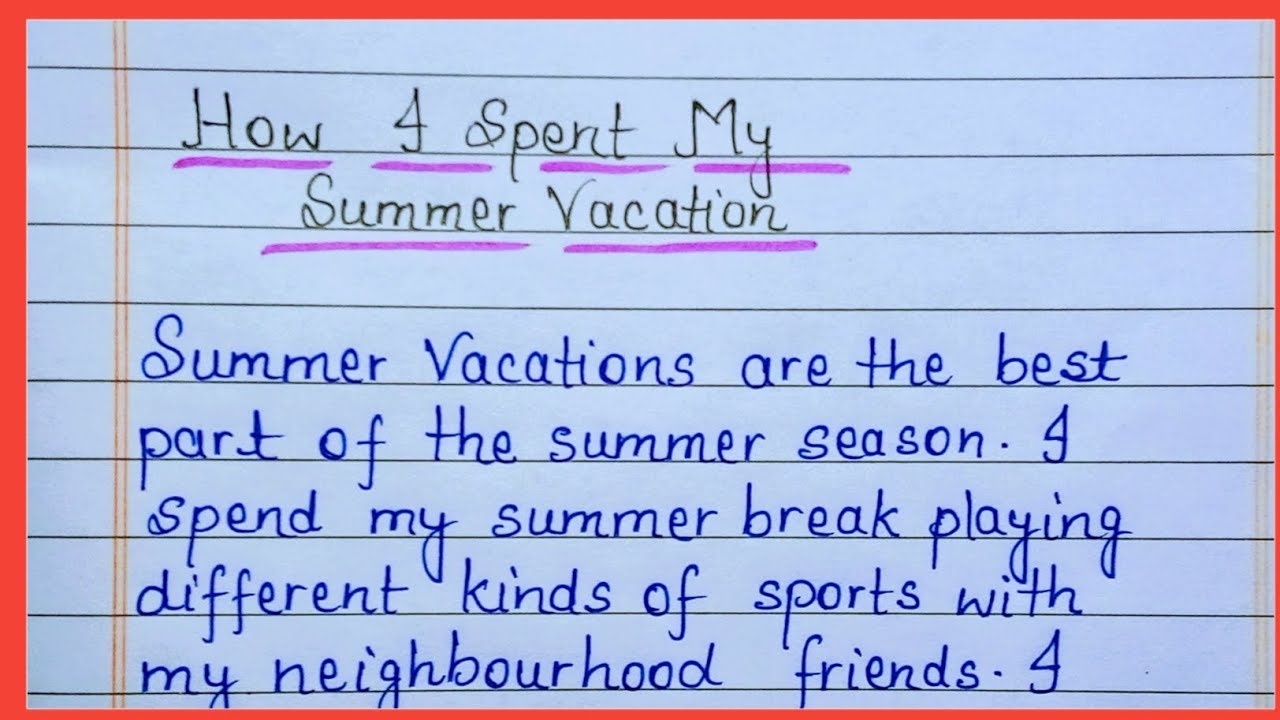 How I Spent My
Summer Vacation
Summer Vacations are the best
part of the summer season. I
spend my summer break playing
different kinds of sports with
my neighbourhood friends. I